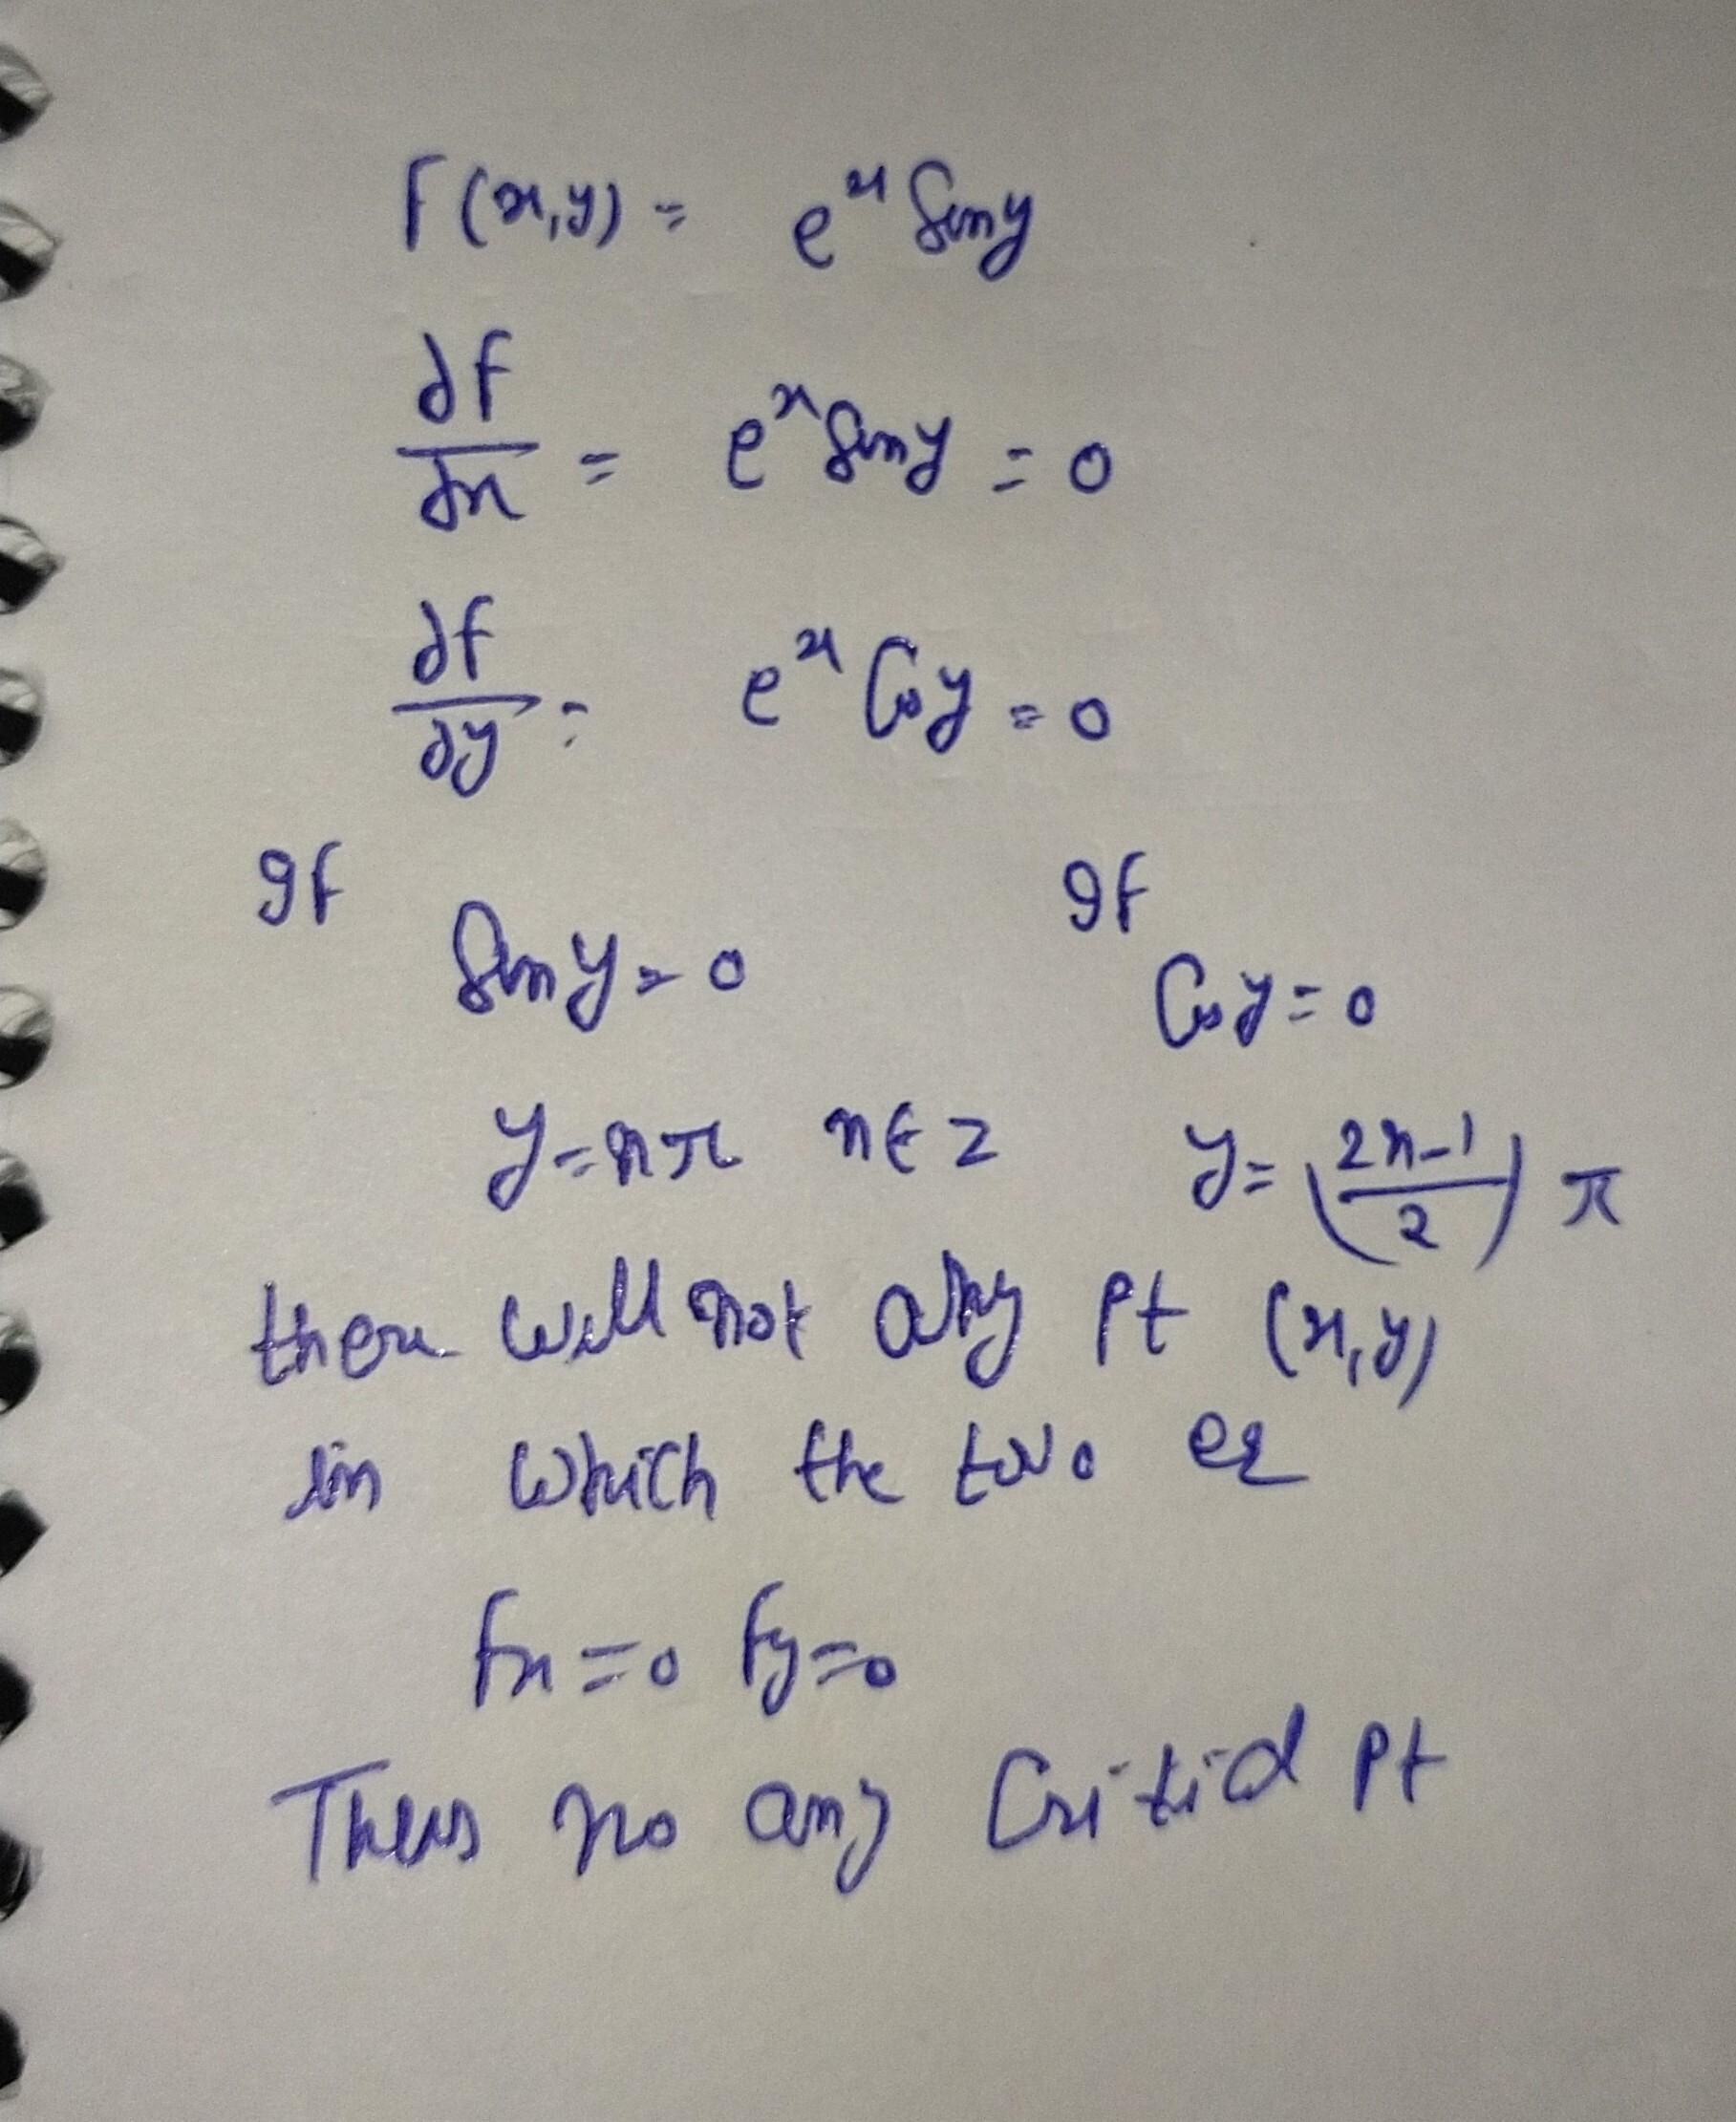 F(x,y) = e^x Siny
∂f/∂x = e^x Siny = 0
∂f/∂y = e^x Cosy = 0
If If
Siny = 0 Cosy = 0
y = nπ n ∈ Z y = (2n-1/2) π
there will not any pt (x,y)
in which the two eq
fx = 0 fy = 0
Thus no any Critical pt